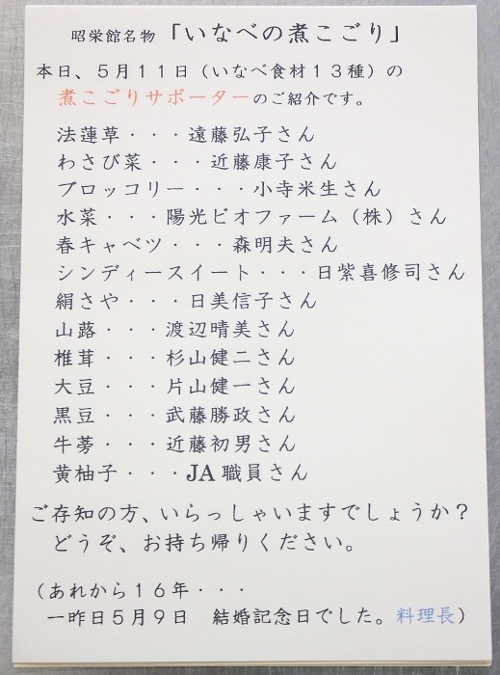 昭栄館名物「いなべの煮こごり」
本日、５月１１日（いなべ食材１３種）の
煮こごりサポーターのご紹介です。
法蓮草・・・遠藤弘子さん
わさび菜・・・近藤康子さん
ブロッコリー・・・小寺米生さん
水菜・・・陽光ビオファーム（株）さん
春キャベツ・・・森明夫さん
シンディースイート・・・日紫喜修司さん
絹さや・・・日美信子さん
山蕗・・・渡辺晴美さん
椎茸・・・杉山健二さん
大豆・・・片山健一さん
黒豆・・・武藤勝政さん
牛蒡・・・近藤初男さん
黄柚子・・・JA職員さん
ご存知の方、いらっしゃいますでしょうか？
どうぞ、お持ち帰りください。
（あれから１６年・・・
一昨日５月９日　結婚記念日でした。料理長）